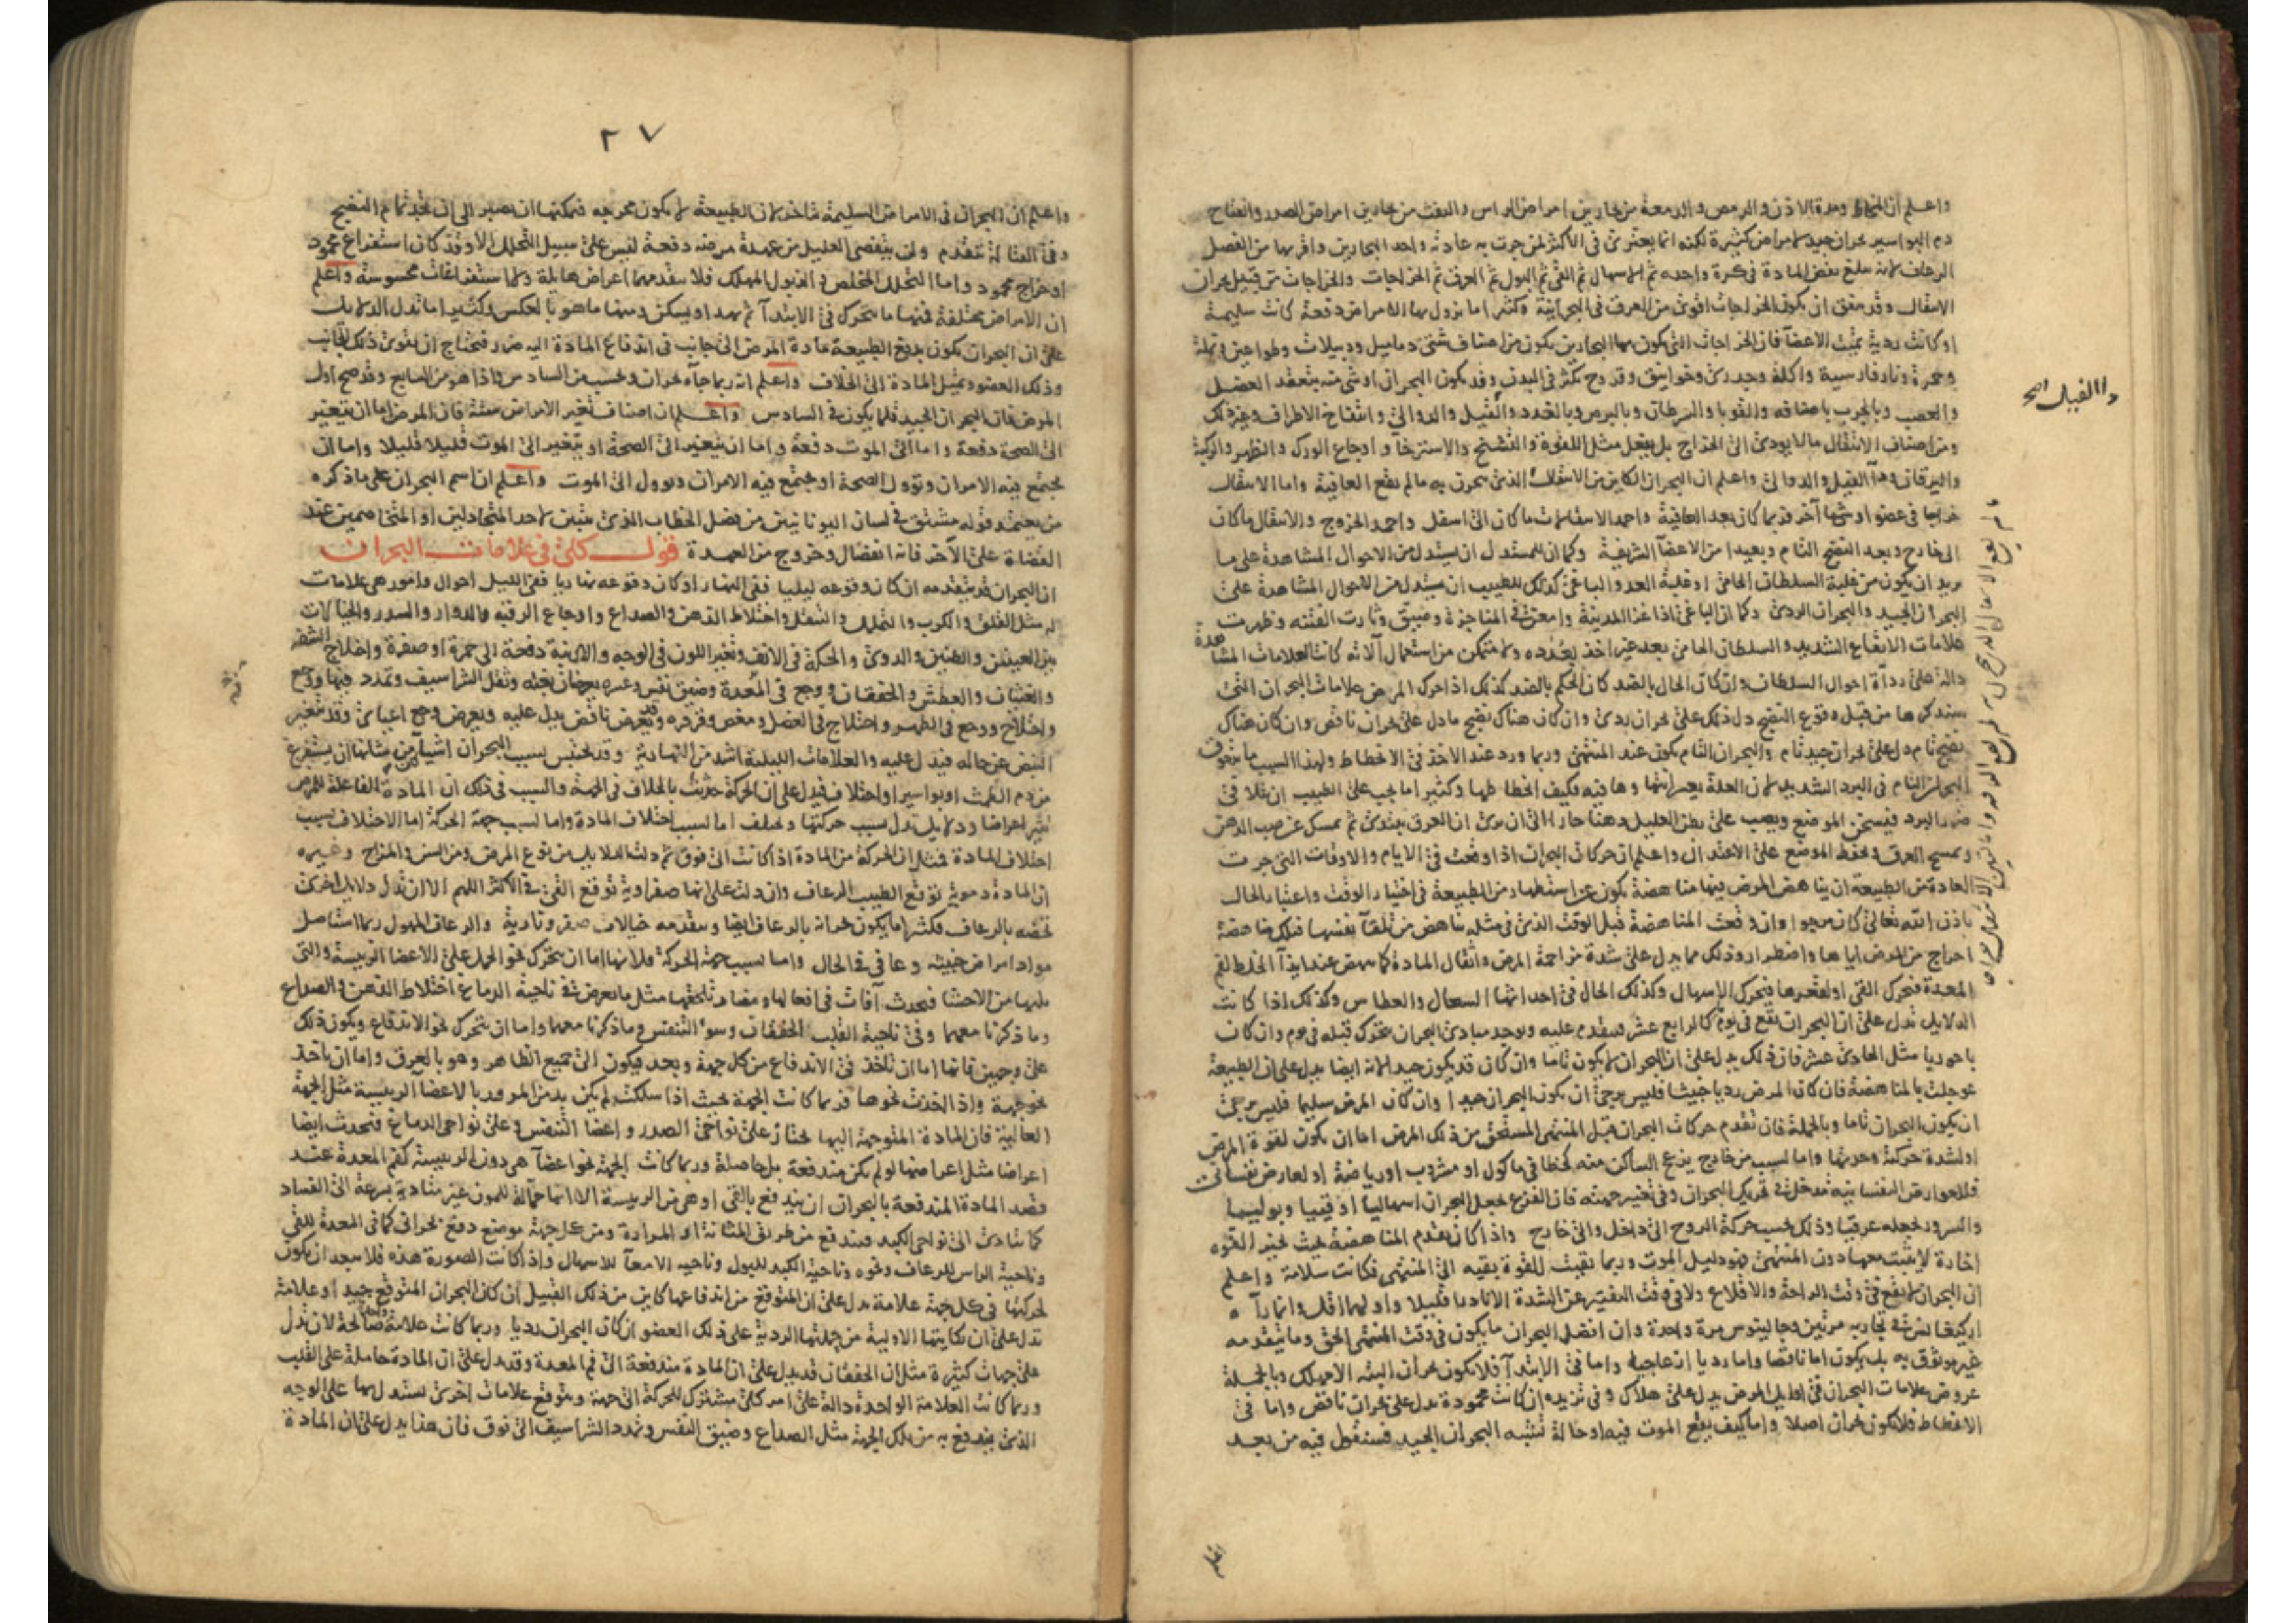 واعلم ان المخاط ومدة الاذن والرمص والدمعة من بحارين امراض الراس والنفث من بحارين امراض الصدر وانفتاح
دم البواسير بحران جيد لامراض كثيرة لكنه انما يعتري في الاكثر لمن جرت به عادته واحد البحارين واقربها من الفصل
الرعاف لانه يبلغ نفض المادة في كرة واحدة ثم الاسهال ثم القي ثم البول ثم العرق ثم الخراجات والخراجات من قبيل بحران
الانتقال وقد يتفق ان يكون الخراجات اقوى من العرق في البحرانية وكثيرا ما يزول بها الامراض دفعة كانت سليمة
او كانت ردية تميت الاعضا فان الخراجات التي يكون بها البحارين يكون من اصناف شتى دماميل ودبيلات وطواعين ونملة
وحمرة ونار فارسية واكلة وجدري وخوانيق وقروح تكثر في البدن وقد يكون البحران او شي منه بتعقد العضل
والعصب وبالجرب باصنافه والقوبا والسرطان وبالبرص وبالغدد والفيل والدوالي وانتفاخ الاطراف وغير ذلك
ومن اصناف الانتقال مالا يودي الى الخراج بل يفعل مثل اللقوة والتشنج والاسترخا واوجاع الورك والظهر والركبة
واليرقان ودا الفيل والدوالي واعلم ان البحران الكاين من الانتقال الذي يبحرن به مالم يقع العاقبة واما الانتقال
خراجا في عضو او شيا آخر فربما كان بعد العافية واحمد الانتقالات ما كان الى اسفل واحمد الخروج والانتقال ما كان
الى خارج وبعد النضج التام وبعيدا من الاعضآ الشريفة وكما ان للمستدل ان يستدل من الاحوال المشاهدة على ما
يريد ان يكون من غلبة السلطان الحامي او غلبة العدو والباغي كذلك للطبيب ان يستدل من الاحوال المشاهدة على
البحران الجيد والبحران الردي وكما ان الباغي اذا غزا المدينة وامعن في المناجزة وضيق وثارت الفتنة وظهرت
علامات الايقاع الشديد والسلطان الحامي بعد غير اخذ بعُدده ولا متمكن من استعمال آلاته كانت العلامات المشاهدة
دالة على ردآة احوال السلطان وان كان الحال بالضد كان الحكم بالضد كذلك اذا حرك المرض علامات البحران التي
سنذكرها من قبل وقوع النضج دل ذلك على بحران ردي وان كان هناك نضج ما دل على بحران ناقص وان كان هناك
نضج تام دل على بحران جيد تام والبحران التام يكون عند المنتهى وربما ورد عند الاخذ في الانحطاط ولهذا السبب ما يتعوق
البحران التام في البرد الشديد لان العلة يعسر انتهاوها فيه فكيف انحطاطها وكثيرا ما يجب على الطبيب ان يتلافى
ضرر البرد فيسخن الموضع ويصب على بطن العليل دهنا حارا الى ان يرى ان العرق يبتدي ثم يمسك عن صب الدهن
ويمسح العرق ويحفظ الموضع على الاعتدال واعلم ان حركات البحران اذا وقعت في الايام والاوقات التي جرت
العادة من الطبيعة ان يناهض المرض فيها مناهضة يكون عن استظهار من الطبيعة في اختيار الوقت واعتبار الحال
باذن الله تعالى كان مرجوا وان وقعت المناهضة قبل الوقت الذي في مثله يناهض من تلقآ نفسها فتلك مناهضة
احراج من المرض اياها واضطرار وذلك مما يدل على شدة مزاحمة المرض واثقال المادة كما ينهض عند ايذآ الخلط لفم
المعدة فتحرك القي او لقعرها فتحرك الاسهال وكذلك الحال في احداثها السعال والعطاس وكذلك اذا كانت
الدلايل تدل على ان البحران يقع في يوم كالرابع عشر فيتقدم عليه ويوجد مبادي البحران تتحرك قبله في يوم وان كان
باحوريا مثل الحادي عشر فان ذلك يدل على ان البحران لا يكون تاما وان كان قد يكون جيدا لانه ايضا يدل على ان الطبيعة
عوجلت بالمناهضة فان كان المرض رديا خبيثا فليس يرجى ان يكون البحران جيدا وان كان المرض سليما فليس يرجى
ان يكون البحران تاما وبالجملة فان تقدم حركات البحران قبل المنتهى المستحق من ذلك المرض اما ان يكون لقوة المرض
او لشدة حركته وحدتها واما لسبب من خارج يزعج الساكن منه كخطا في ماكول او مشروب او رياضة او لعارض نفساني
فللعوارض النفسانية مدخل في تحريك البحران وفي تغيير جهته فان الفزع يجعل البحران اسهاليا او قيييا وبوليبيا
والسرور يجعله عرقيا وذلك بحسب حركة الروح الى داخل والى خارج واذا كان تقدم المناهضة بحيث تخير القوه
اخارة لا يثبت معها دون المنتهى فهو دليل الموت وربما بقيت للقوة بقيه الى المنتهى فكانت سلامة واعلم
ان البحران لا يقع في وقت الراحة والاقلاع ولا في وقت التفتير عن الشدة الا نادرا قليلا واوليهما اقل وانما رآه
اركيغانس في تجاربه مرتين وجالينوس مرة واحدة وان افضل البحران ما يكون في وقت المنتهى الحق وما يتقدمه
غير موثوق به بل يكون اما ناقصا واما رديا انزعاجيا واما في الابتدآ فلا يكون بحران البته الا مهلك وبالجملة
عروض علامات البحران في اوايل المرض يدل على هلاك وفي تزيده ان كانت محمودة تدل على بحران ناقص واما في
الانحطاط فلا يكون بحران اصلا واما كيف يقع الموت فيه او حالة تشبه البحران الجيد فسنقول فيه من بعد
واالفيل صح
٢٧
واعلم ان البحران في الامراض السليمة يتاخر لان الطبيعة لا يكون محرجه فيمكنها ان تصبر الى ان تجد تمام النضج
وفي القتالة يتقدم ولن يتقصى العليل من عهدة مرضه دفعة ليس على سبيل التحلل الا وقد كان استفراغ محمود
او خراج محمود واما التحلل المخلص والذبول المهلك فلا يتقدمهما اعراض هايلة ولا استفراغات محسوسة واعلم
ان الامراض مختلفة فمنها ما يتحرك في الابتدآ ثم يهدا ويسكن ومنها ما هو بالعكس وكثيرا ما تدل الدلايل
على ان البحران يكون بدفع الطبيعة مادة المرض الى جانب في اندفاع المادة اليه ضرر فتحتاج ان تقوى ذلك الجانب
وذلك العضو وتميل المادة الى الخلاف واعلم انه ربما جآء بحران وبحسب من السادس واذا هو من السابع وقد صح اول
المرض فان البحران الجيد قلما يكون في السادس واعلم ان اصناف تغير الامراض ستة فان المرض اما ان يتغير
الى الصحة دفعة واما الى الموت دفعة واما ان يتغير الى الصحة او يتغير الى الموت قليلا قليلا واما ان
يجتمع فيه الامران وتؤول الصحة او يجتمع فيه الامران ويوول الى الموت واعلم ان اسم البحران على ما ذكره
من يعتمد قوله مشتق في لسان اليونانيين من فصل الخطاب الذي يتبين لاحد المتجادلين او المتخاصمين عند
القضاة على الآخر فانه انفصال وخروج من العهدة قول كلي في علامات البحران
ان البحران قد يتقدمه ان كان وقوعه ليليا ففي النهار او كان وقوعه نهاريا ففي الليل احوال وامور هي علامات
له مثل القلق والكرب والتململ والتنقل واختلاط الذهن والصداع واوجاع الرقبه والدوار والسدر والخيالات
بين العينين والطنين والدوي والحكة في الانف وتغير اللون في الوجه والارنبة دفعة الى حمرة او صفرة واختلاج الشفه
والغثيان والعطش والخفقان ووجع في المعدة وضيق نفس وعسره يعرضان بغتة وثقل الشراسيف وتمدد فيها ووجع
واختلاج ووجع في الظهر واختلاج في العضل ومغص وقرقره وقد يعرض نافض يدل عليه ويعرض وجع اعيايي وقد يتغير
النبض عن حاله فيدل عليه والعلامات الليلية اشد من النهارية وقد تحتبس بسبب البحران اشيآ من شانها ان يستفرغ
من دم الطمث او بواسير او اختلاف فيدل على ان الحركة حدثت بالخلاف في الجهة والسبب في ذلك ان المادة الفاعلة للمرض
تثير اعراضا ودلايل تدل بسبب حركتها وتختلف اما لسبب اختلاف المادة واما لسبب جهة الحركة اما الاختلاف لسبب
اختلاف المادة فمثل ان الحركة من المادة اذا كانت الى فوق ثم دلت الدلايل من نوع المرض ومن السن والمزاج وغيره
ان المادة دموية توقع الطبيب الرعاف وان دلت على انها صفراوية توقع القي في الاكثر اللهم الا ان تدل دلايل اخرى
تخصه بالرعاف فكثيرا ما يكون بحرانه بالرعاف ايضا ويتقدمه خيالات صفر ونارية والرعاف المهول ربما استاصل
مواد امراض خبيثه وعافى في الحال واما لسبب جهة الحركة فلانها اما ان يتحرك نحو الحمل على الاعضا الرييسة والتي
تليها من الاحشا فيحدث آفات في افعالها ومضار تلحقها مثل ما يعرض في ناحية الدماغ اختلاط الذهن والصداع
وما ذكرنا معهما وفي ناحية القلب الخفقان وسوء التنفس وما ذكرنا معهما واما ان يتحرك نحو الاندفاع ويكون ذلك
على وجهين فانها اما ان تاخذ في الاندفاع من كل جهة وبعد فيكون الى جميع الظاهر وهو بالعرق واما ان ياخذ
نحو جهة واذا اخذت نحوها فربما كانت الجهة بحيث اذا سلكت لم يكن بد من المرور بالاعضا الرييسة مثل الجهة
العالية فان المادة المتوجهة اليها تجتاز على نواحي الصدر واعضا التنفس وعلى نواحي الدماغ فتحدث ايضا
اعراضا مثل اعراضها لو لم يكن مندفعة بل حاصلة وربما كانت الجهة نحو اعضآ هي دون الرييسة كفم المعدة عند
قصد المادة المندفعة بالبحران ان يندفع بالقي او هي من الرييسة الا انها حمالة للمون غير متادية بسرعة الى الفساد
كما تتادى الى نواحي الكبد فيندفع من طريق المثانة او المرارة ومن كل جهة موضع دفع بحراني كما في المعدة للقي
وناحية الراس للرعاف ونحوه وناحية الكبد للبول وناحيه الامعآ للاسهال واذا كانت الصورة هذه فلا يبعد ان يكون
لحركتها في كل جهة علامة تدل على ان المتوقع من اندفاعها كاين من ذلك القبيل ان كان البحران المتوقع جيدا وعلامة
تدل على ان نكايتها الاولية من جملتها الردية على ذلك العضو ان كان البحران رديا وربما كانت علامة صالحة لان تدل
على جهات كثيرة مثل ان الخفقان قد يدل على ان المادة مندفعة الى فم المعدة وقد يدل على ان المادة حاملة على القلب
وربما كانت العلامة الواحدة دالة على امر كلي مشترك للحركة الى جهة ويتوقع علامات اخرى يستدل بها على الوجه
الذي يندفع به من تلك الجهة مثل الصداع وضيق النفس وتمدد الشراسيف الى فوق فان هذا يدل على ان المادة